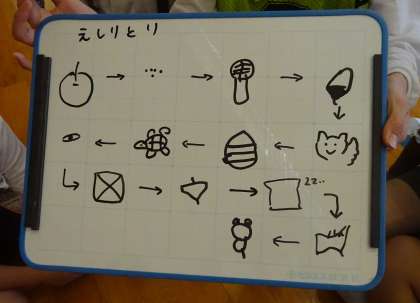 えしりとり
zz..